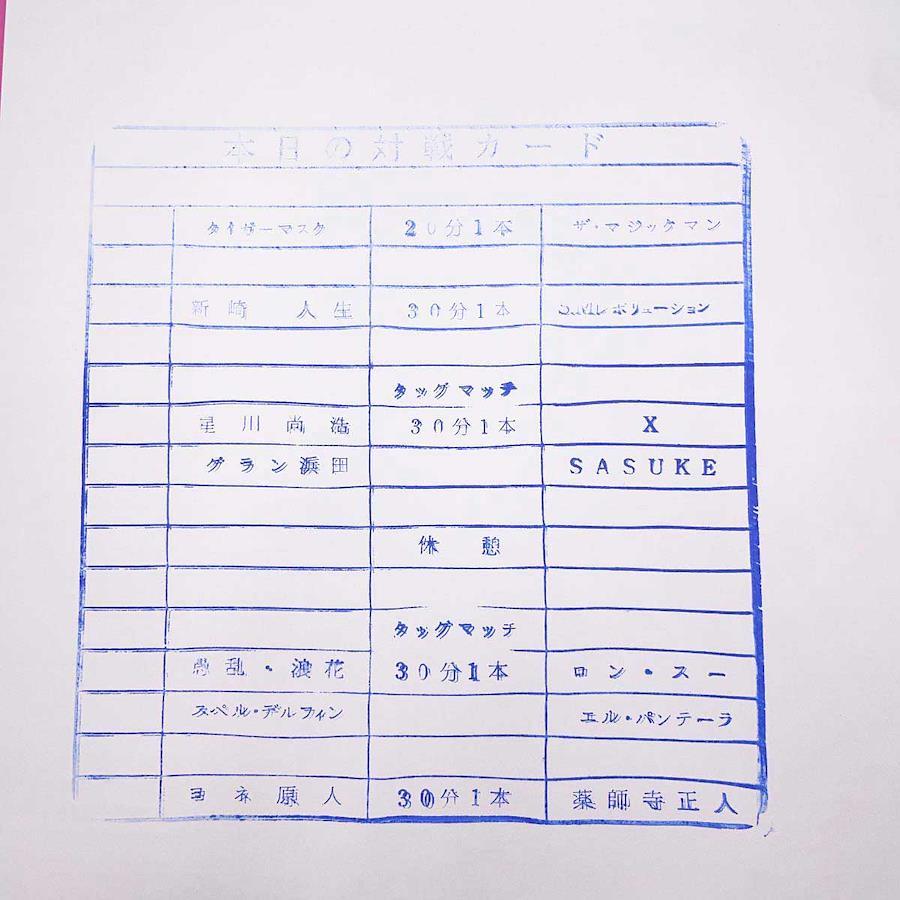 本日の対戦カード
タイガーマスク 20分1本 ザ・マジックマン
新崎 人生 30分1本 レボリューション
タッグマッチ
星川尚浩 30分1本 X
グラン浜田 SASUKE
休 憩
タッグマッチ
愚乱・浪花 30分1本 ロン・スー
スペル・デルフィン エル・パンテーラ
ヨネ原人 30分1本 薬師寺正人